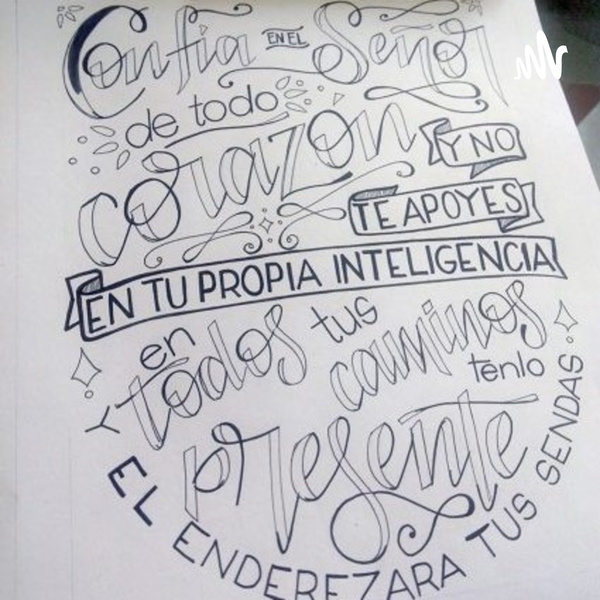 Confia EN EL Señor
de todo
corazon Y NO
TE APOYES
EN TU PROPIA INTELIGENCIA
en todos tus caminos
tenlo
presente
Y EL ENDEREZARA TUS SENDAS